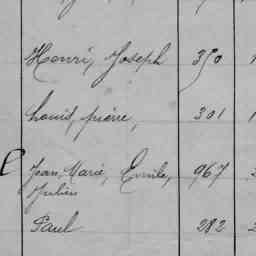 Henri, Joseph 350
Louis, pierre, 301
Jean, Marie, Emile, 967
Julien
Paul 282